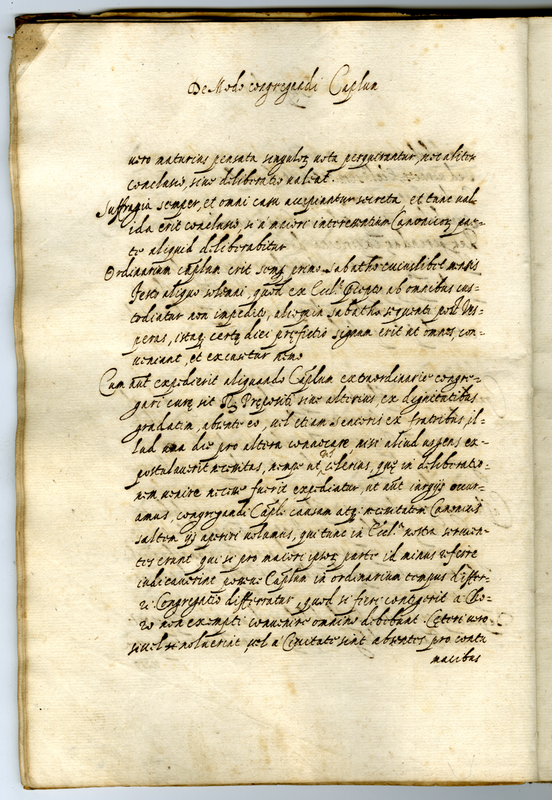 De Modo congregandi Caplum
vero maturius pensata singulor. vota perquirantur, nec aliter
conclusio, sive deliberatio valeat.
Suffragia semper, et omni casu accipiantur secreta, et tunc val-
ida erit conclusio, si a maiori interessentium Canonicor. par-
te aliquid deliberabitur
Ordinarium caplum erit semp. primo sabatho cuiuslibet mensis
festo aliquo solemni, quod ex Eccl. ab omnibus cus-
todiatur non impedito, alioquin sabatho sequenti post Ves-
peras, itaq. certo diei prefictio signum erit ut omnes con-
veniant, et excusetur nemo
Cum aut expedierit aliquando Caplum extraordinarie congre-
gari cure sit Prepositi sive alterius ex dignitatibus
gradatim, absente eo, vel etiam senioris ex fratribus il-
lud una die pro altera convocare, nisi aliud urgens ex-
postulaverit necessitas, nempe ut celerius, que in deliberatio-
nem venire necesse fuerit expediatur, ut aut iurgijs occur-
amus, congregandi Capli causam atq. necessitatem Canonicis
saltem ijs aperiri volumus, qui tunc in Eccl. nostra servien-
tes erunt qui si pro maiori ipsor. parte id minus referre
iudicaverint posse Caplum in ordinarium tempus differ-
ri Congregatio differratur, quod si fieri contigerit a Cho-
ro non exempti convenire omnino debebunt. Ceteri vero
si vel se noluerint, vel a Civitate sint absentes pro contu
macibus